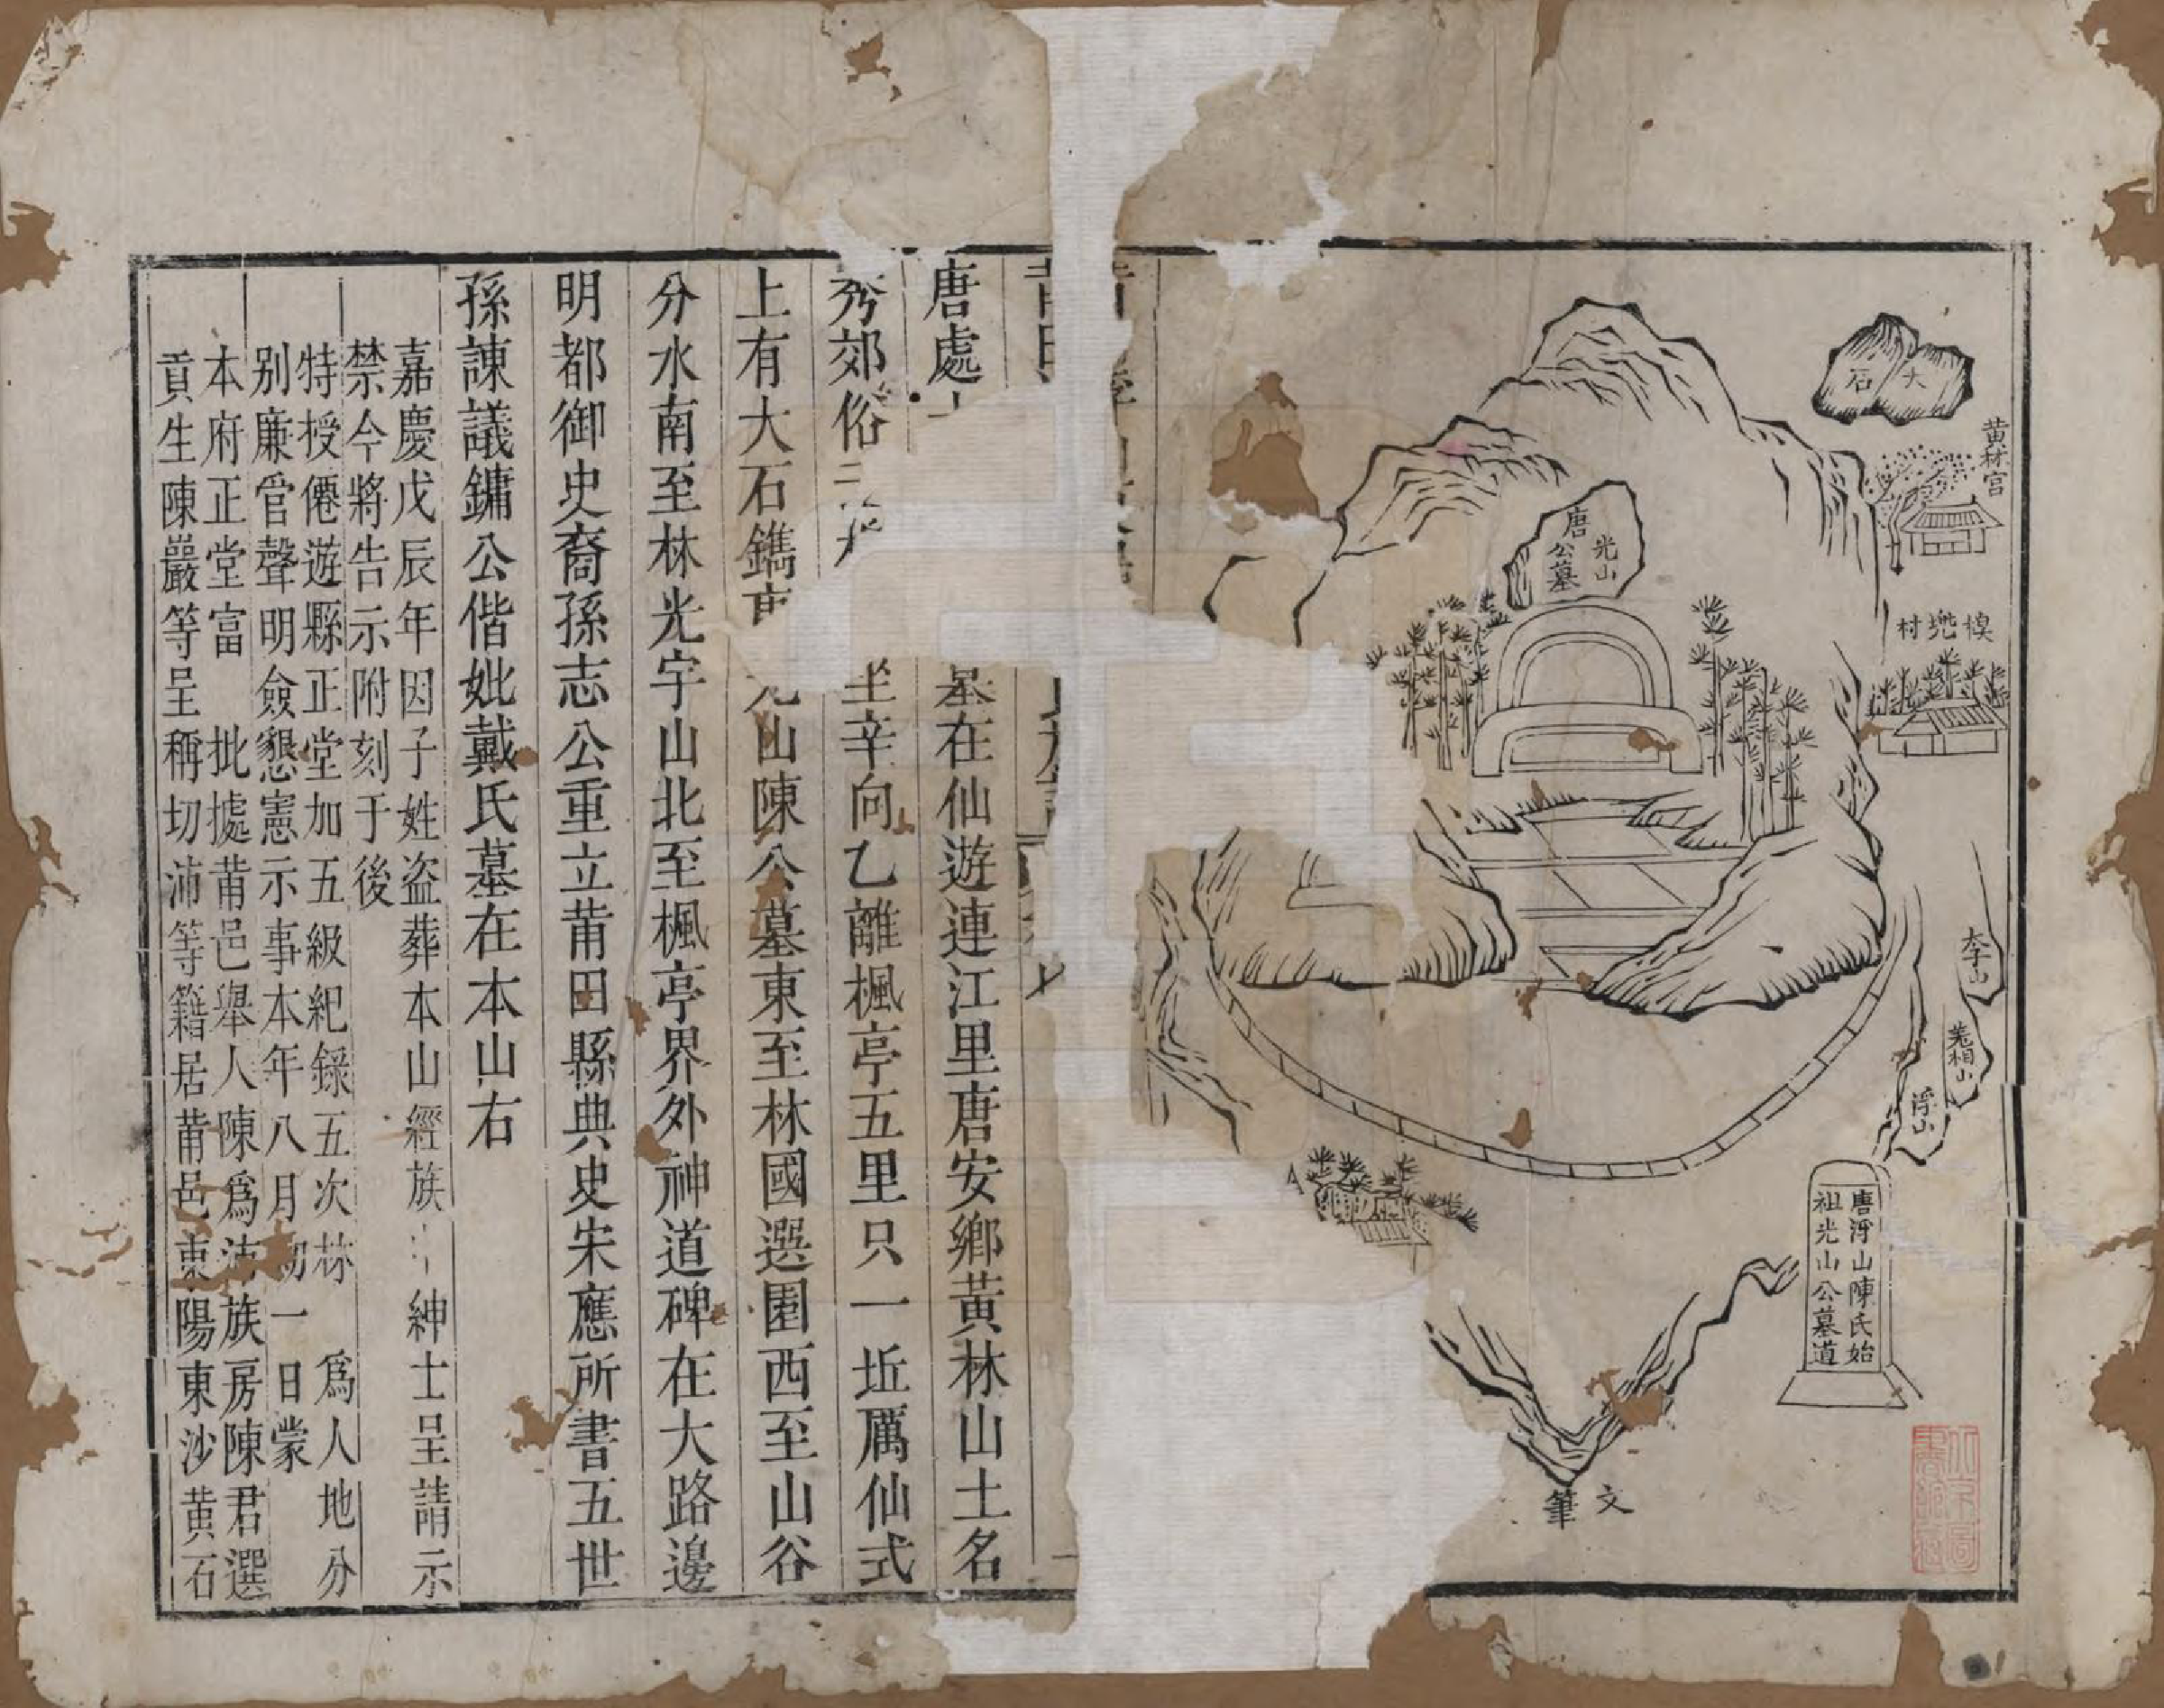 大石
黄林宫
唐
光山
公墓
模兠村
李山
羗相山
浮山
唐浮山陳氏始
祖光山公墓道
文筆
唐處
墓在仙遊連江里唐安鄉黃林山土名
郊俗
坐辛向乙離楓亭五里只一坵厲仙式
上有大石鐫
山陳公墓東至林國選園西至山谷
分水南至林光宇山北至楓亭界外神道碑在大路邊
明都御史裔孫志公重立莆田縣典史宋應所書五世
孫諫議鏞公偕妣戴氏墓在本山右
嘉慶戊辰年因子姓盗葬本山經族
紳士呈請示
禁今將告示附刻于後
特授僊遊縣正堂加五級紀錄五次林 爲人地分
别廉官聲明僉懇憲示事本年八月初一日蒙
本府正堂富 批據莆邑舉人陳爲
族房陳君選
貢生陳嚴等呈稱切沛等籍居莆邑東陽東沙黃石